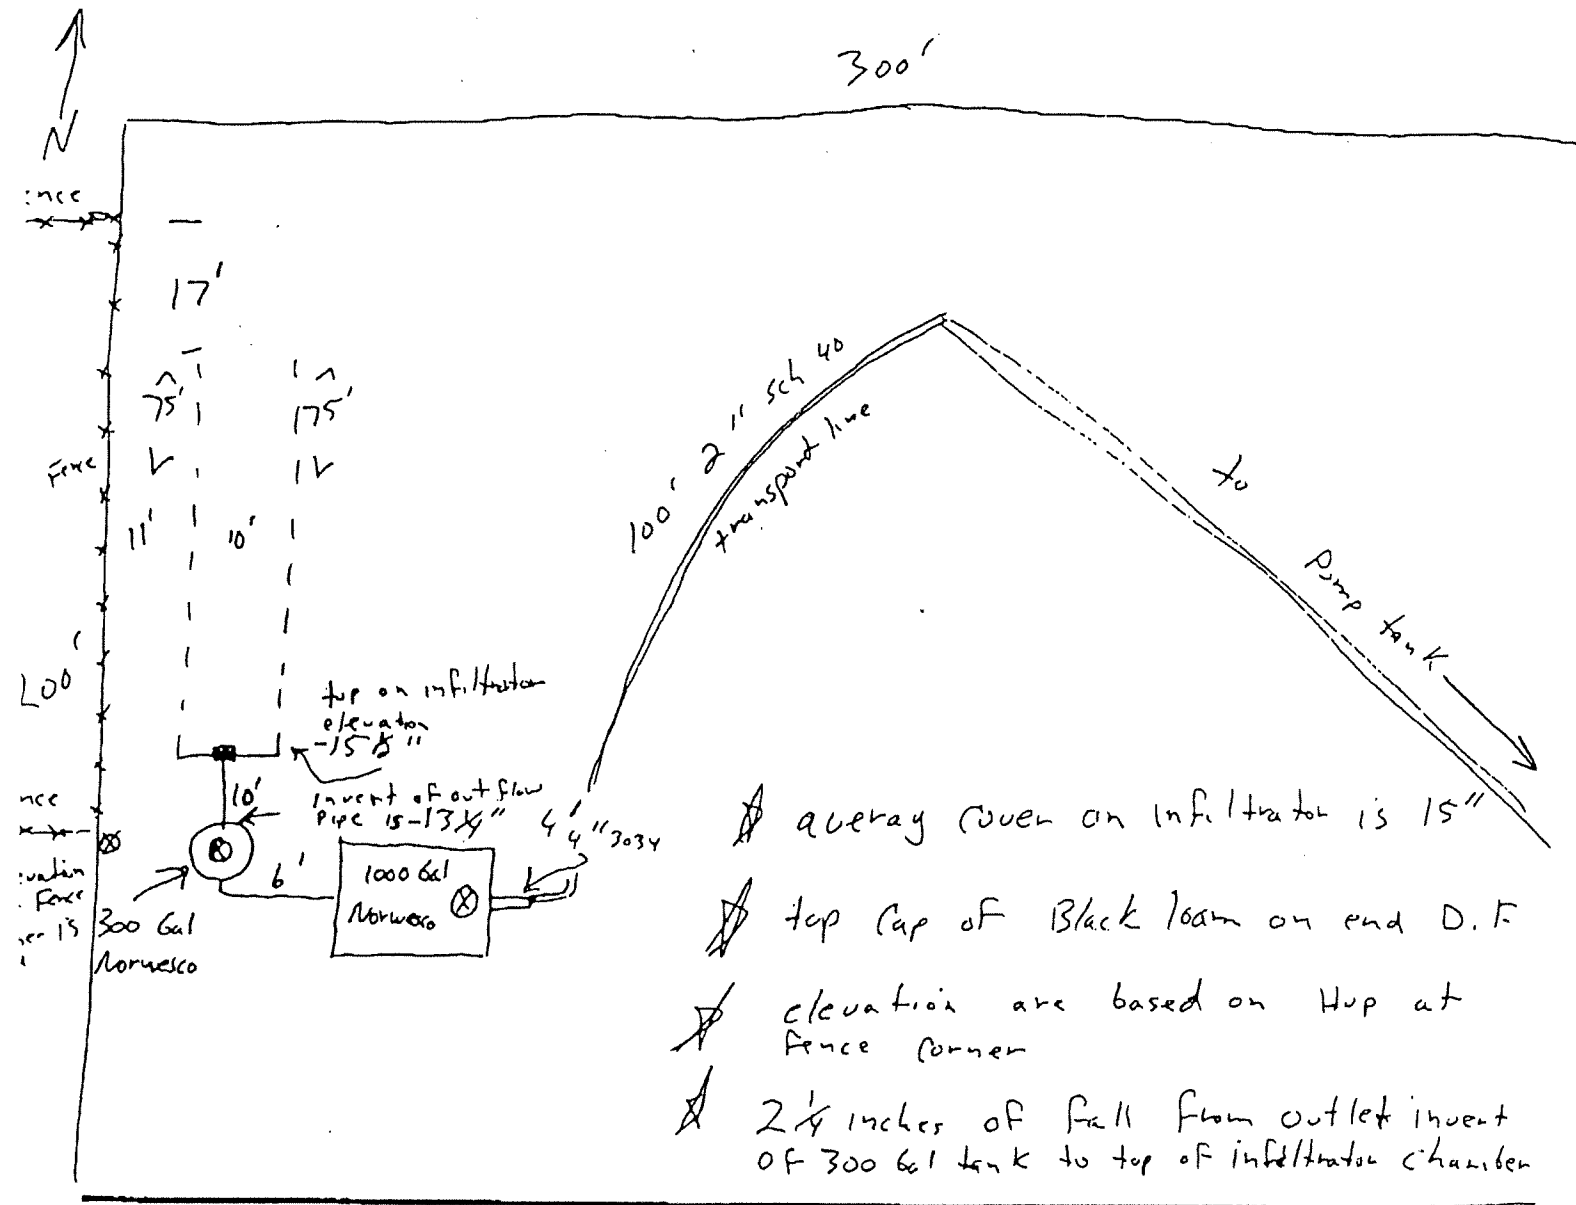 300'
N
:nce
17'
75'
175'
Fence
11'
10'
100' 2" sch 40
transpord line
to
Pump tank
200'
top on infiltrator
elevation
-15 ½"
10'
invert of out flow
Pipe is -13 ¼"
nce
4'
4" 3034
6'
1000 Gal
Norwesco
300 Gal
Norwesco
vation
Fence
ner is
averag cover on infiltrator is 15"
top Cap of Black loam on end D.F
elevation are based on Hup at
fence corner
2 ¼ inches of fall from outlet invert
of 300 Gal tank to top of infiltrator chamber